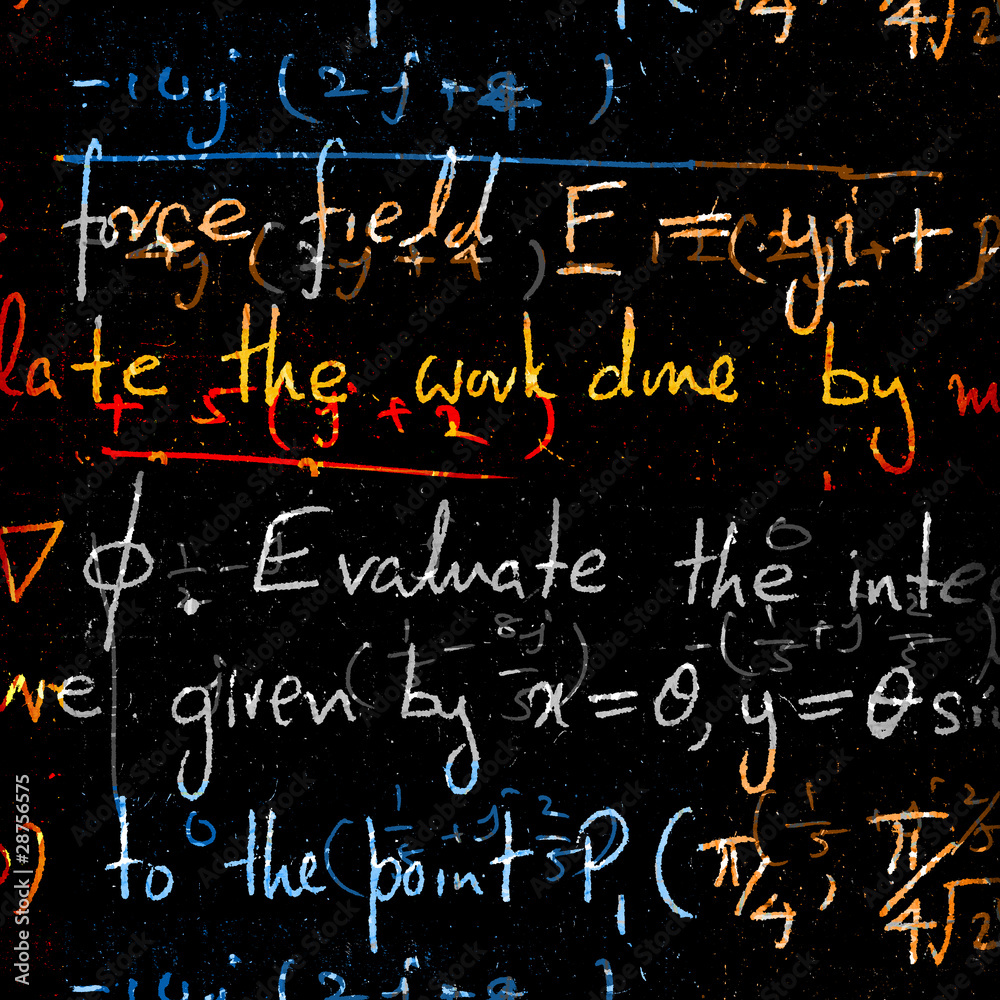 π/4√2
-10j (2j+4)
force field F = (yi +
4j (2y+4) 12(2j+
late the work done by m
+ 5(j+2)
∇ϕ. Evaluate the inte
ve given by x=θ, y=θ si
to the point P₁ (π/4, π/4√2
-10j (2j+4)
Adobe Stock | #28756575